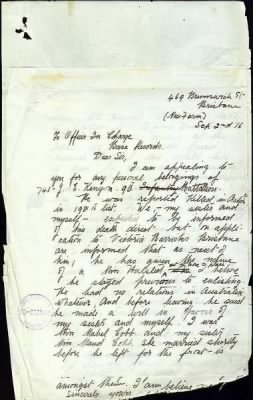 469 Brunswick St
Brisbane
(New Farm)
Sep 2nd 16
To Officer In Charge
Base Records.
Dear Sir,
I am appealing to
you for any personal belongings of
J. E. Kenyon 9th Infantry Battalion.
He was reported Killed in
in 190th List We - my sister and
myself - expected to be informed
of his death direct but on appli-
cation to Victoria Barracks Brisbane
are informed that as next of
kin, he has given the name
of a Mrs I believe
he stayed previous to enlisting
He had no relations in Australia
whatever, And before leaving he said
he made a will in favour of
my sister and myself. I was
Miss Mabel Cobb and my sister
Miss Maud Cobb. She married shortly
before he left for the front - is
amongst them. I am believe me
Sincerely yours